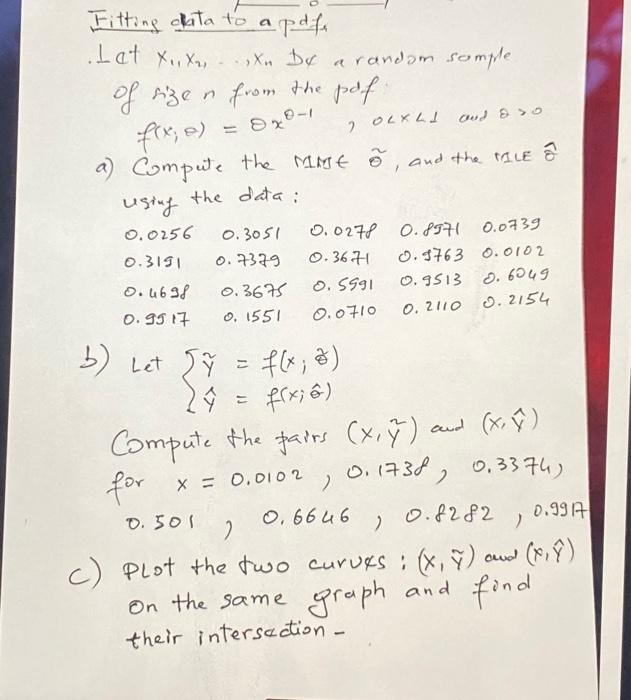 Fitting data to a pdf.
. Let x₁, x₂, ..., xₙ be a random sample
of size n from the pdf:
f(x; θ) = θx^{θ-1} , 0<x<1 and θ>0
a) Compute the MME θ̃, and the MLE θ̂
using the data:
0.0256 0.3051 0.0278 0.8971 0.0739
0.3191 0.7379 0.3671 0.9763 0.0102
0.4698 0.3675 0.5991 0.9513 0.6049
0.9917 0.1551 0.0710 0.2110 0.2154
b) Let { ỹ = f(x; θ̃)
ŷ = f(x; θ̂)
Compute the pairs (x, ỹ) and (x, ŷ)
for x = 0.0102 , 0.1738 , 0.3374,
0.501 , 0.6646 , 0.8282 , 0.9917
c) Plot the two curves : (x, ỹ) and (x, ŷ)
on the same graph and find
their intersection -